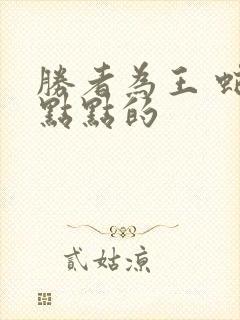 勝者為王 蛇
點點的
貳姑涼